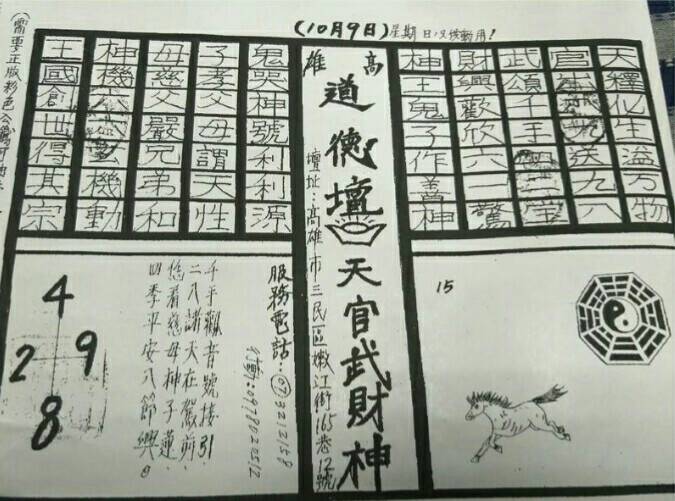 (10月9日)星期
高雄
道德壇
天官武財神
壇址:高雄市三民區嫩江街165巷12號
天釋化生溢万物
官生送九八
武頌千手堂
財興歡欣六二驚
神王鬼子作善神
15
鬼哭神號利利源
子孝父母謂天性
母慈父嚴兄弟和
神機玄機動
王國創世得其宗
服務電話:(07)3212158
千手觀音號接引.
二八諸天在駕前.
慈母神子蓮.
四季平安八節興。
4
2 9
8
(需要正版彩色公